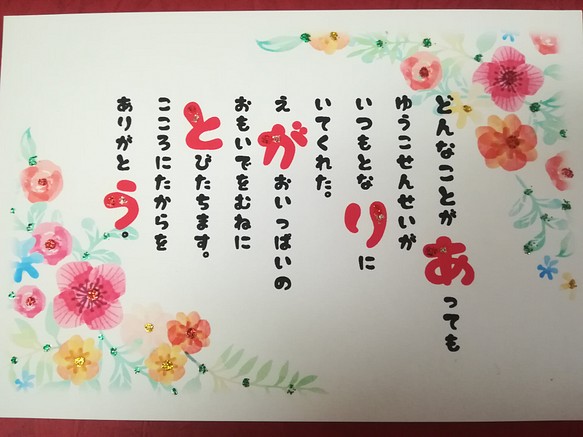 どんなことがあっても
ゆうこせんせいが
いつもとなりに
いてくれた。
えがおいっぱいの
おもいでをむねに
とびたちます。
こころにたからを
ありがとう。